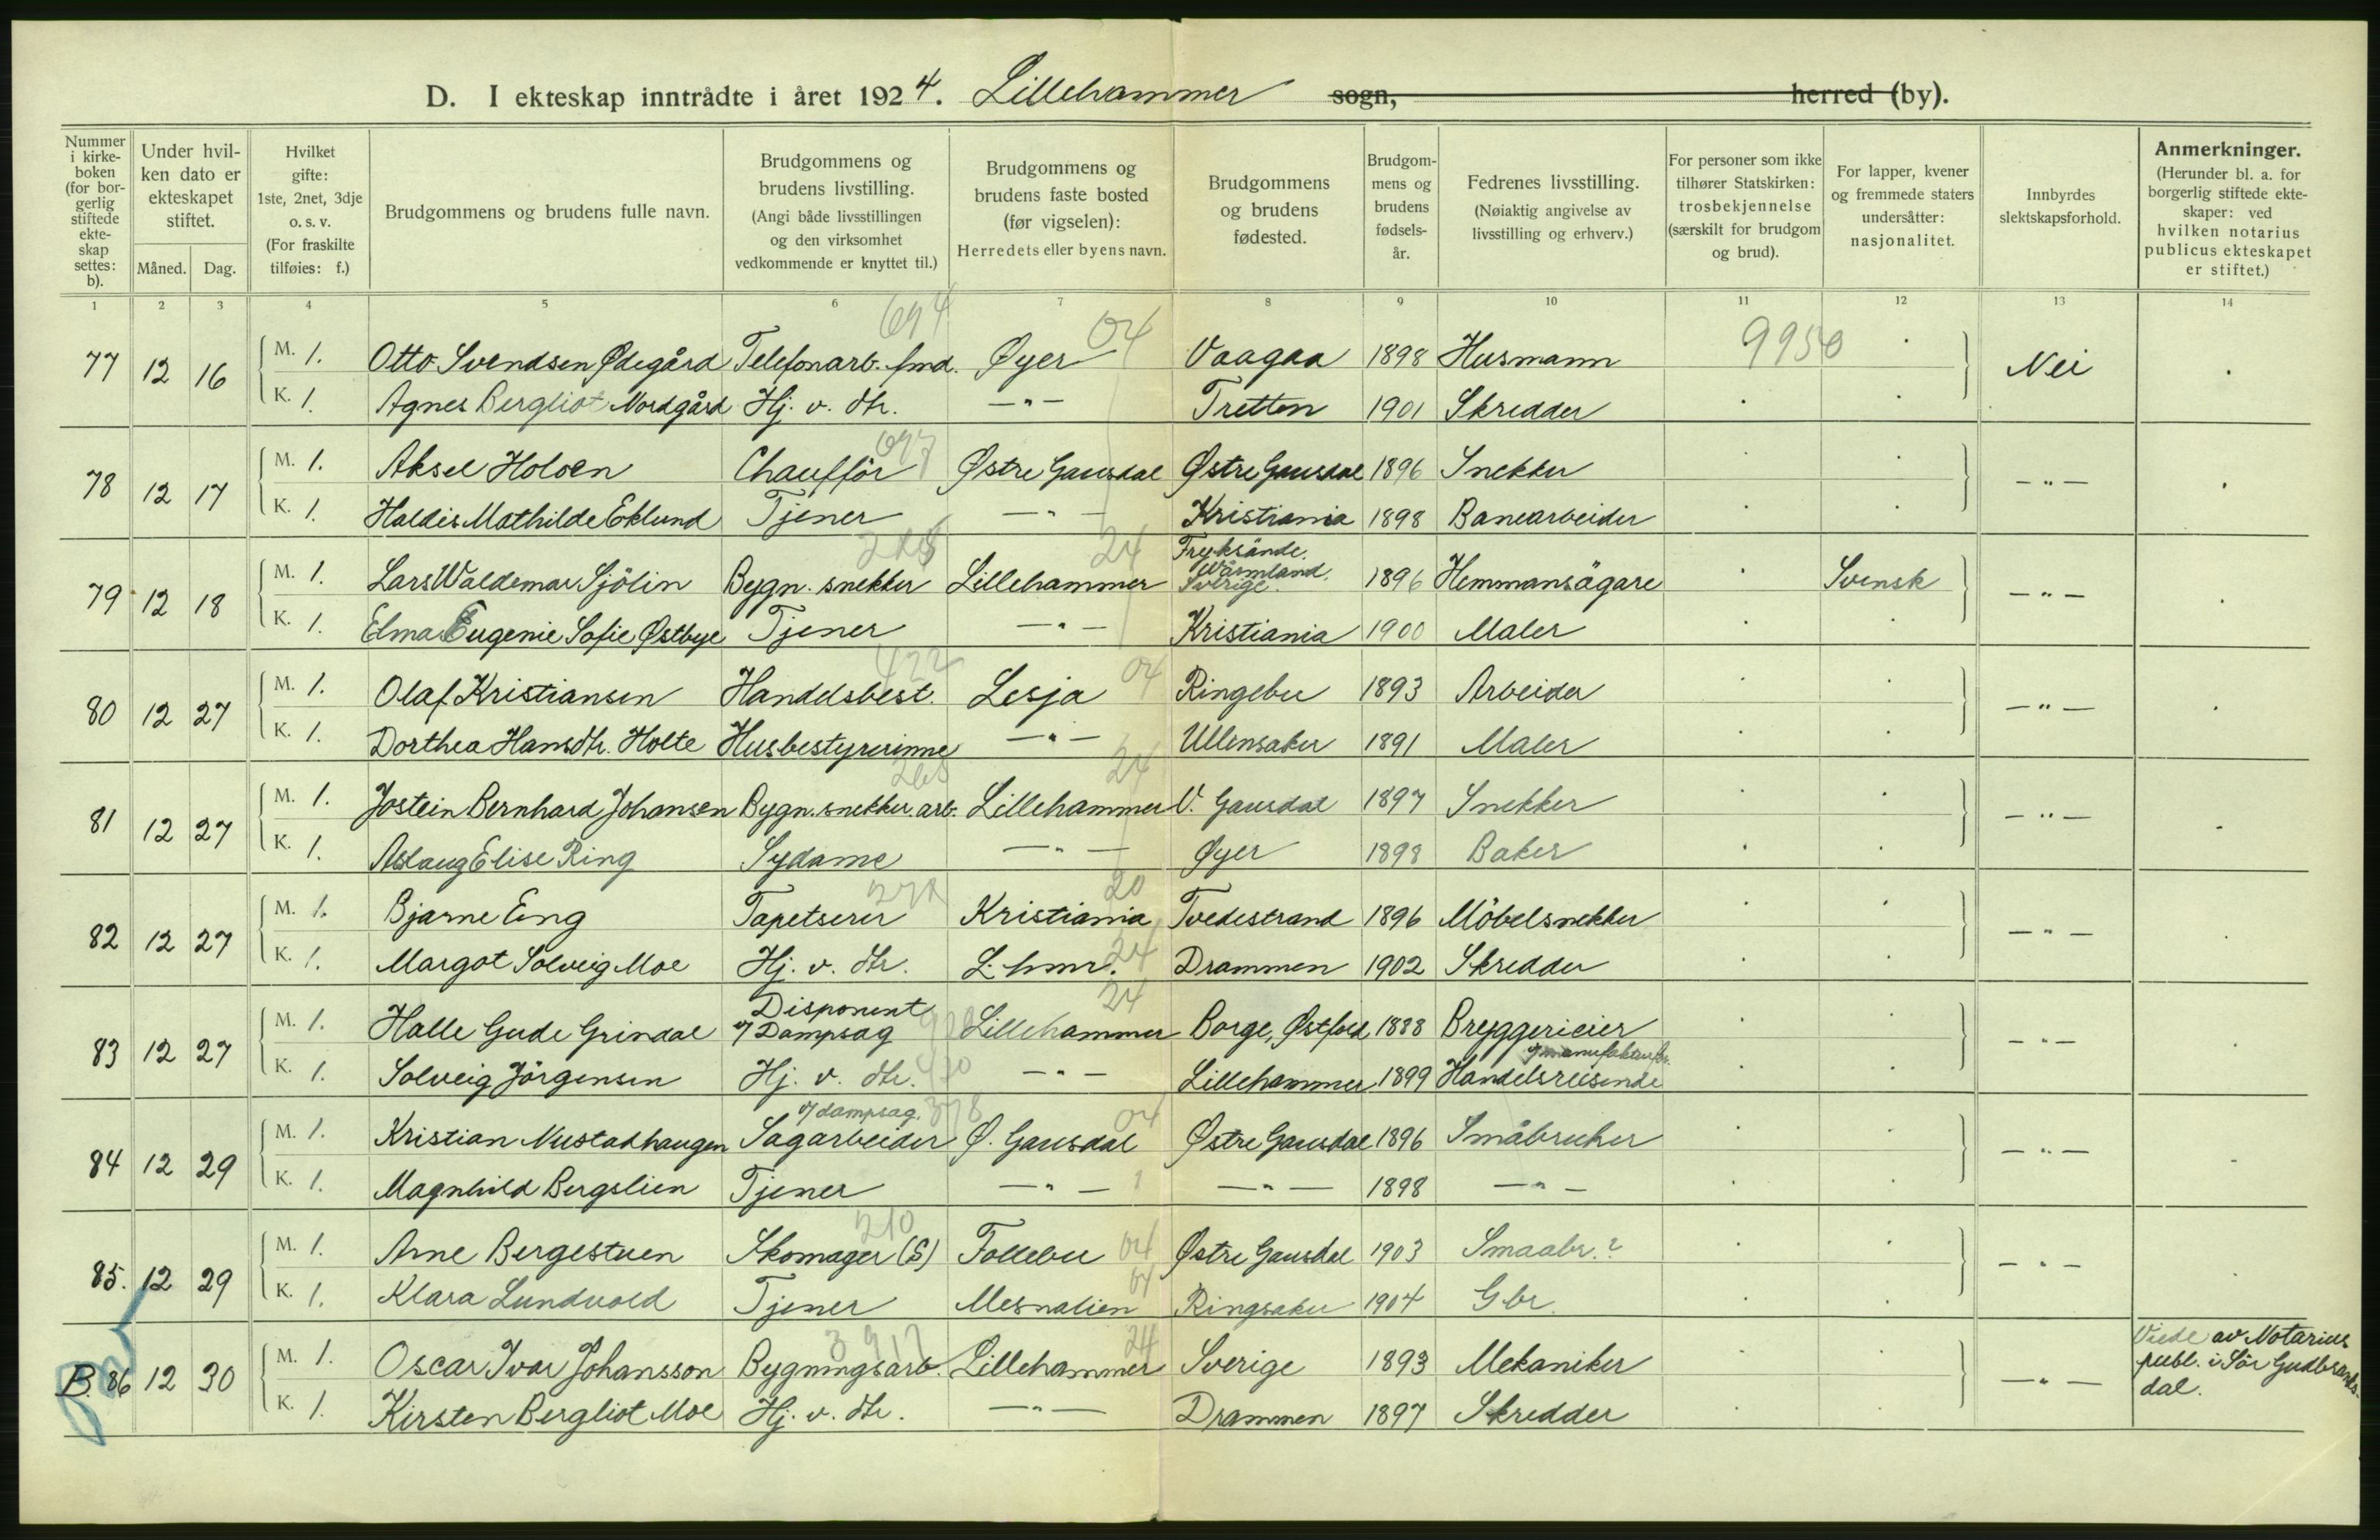 D. I ekteskap inntrådte i året 1924. Lillehammer sogn, herred (by).
Nummer i kirkeboken (for borgerlig stiftede ekteskap settes: b).
Under hvilken dato er ekteskapet stiftet.
Måned. Dag.
Hvilket gifte: 1ste, 2net, 3dje o. s. v. (For fraskilte tilføies: f.)
Brudgommens og brudens fulle navn.
Brudgommens og brudens livstilling. (Angi både livsstillingen og den virksomhet vedkommende er knyttet til.)
Brudgommens og brudens faste bosted (før vigselen): Herredets eller byens navn.
Brudgommens og brudens fødested.
Brudgommens og brudens fødselsår.
Fedrenes livsstilling. (Nøiaktig angivelse av livsstilling og erhverv.)
For personer som ikke tilhører Statskirken: trosbekjennelse (særskilt for brudgom og brud).
For lapper, kvener og fremmede staters undersåtter: nasjonalitet.
Innbyrdes slektskapsforhold.
Anmerkninger. (Herunder bl. a. for borgerlig stiftede ekteskaper: ved hvilken notarius publicus ekteskapet er stiftet.)
1 2 3 4 5 6 7 8 9 10 11 12 13 14
694 04 9950
77 12 16 M. 1. Otto Svendsen Ødegård Telefonarb. fmd. Øyer Vaagaa 1898 Husmann Nei
K. 1. Agnes Bergliot Nordgård Hj. v. dtr. —"— Tretten 1901 Skredder
78 12 17 M. 1. Aksel Holoen Chaufför Østre Gausdal Østre Gausdal 1896 Snekker —"—
K. 1. Haldis Mathilde Eklund Tjener —"— Kristiania 1898 Banearbeider
24 Fryksände.
Wärmland.
79 12 18 M. 1. Lars Waldemar Sjölin Bygn. snekker Lillehammer Sverige. 1896 Hemmansägare Svensk —"—
K. 1. Elma Eugenie Sofie Østbye Tjener —"— Kristiania 1900 Maler
422 04
80 12 27 M. 1. Olaf Kristiansen Handelsbest. Lesja Ringebu 1893 Arbeider —"—
K. 1. Dorthea Hansdtr. Holte Husbestyrerinne —"— Ullensaker 1891 Maler
265 24
81 12 27 M. 1. Jostein Bernhard Johansen Bygn. snekker. arb. Lillehammer V. Gausdal 1897 Snekker —"—
K. 1. Aslaug Elise Ring Sydame —"— Øyer 1898 Baker
20
82 12 27 M. 1. Bjarne Eng Tapetserer Kristiania Tvedestrand 1896 Möbelsnekker —"—
K. 1. Margot Solveig Moe Hj. v. dtr. L.hmr. 24 Drammen 1902 Skredder
Disponent 24
83 12 27 M. 1. Halle Gude Grindal v/ Dampsag Lillehammer Borge, Østfold 1888 Bryggerieier —"—
K. 1. Solveig Jörgensen Hj. v. dtr. —"— Lillehammer 1899 Handelsreisende
v/ dampsag. 378 04
84 12 29 M. 1. Kristian Nustadhaugen Sagarbeider Ø. Gausdal Østre Gausdal 1896 Småbruker —"—
K. 1. Magnhild Bergslien Tjener —"— —"— 1898 —"—
210
85. 12 29 M. 1. Arne Bergestuen Skomager (S) Follebu 04 Østre Gausdal 1903 Smaabr.? —"—
K. 1. Klara Lundvold Tjener Mesnalien 04 Ringsaker 1904 Gbr.
3917 24
B. 86 12 30 M. 1. Oscar Ivar Johansson Bygningsarb. Lillehammer Sverige 1893 Mekaniker —"— Viede av Notarius publ. i Sör Gudbrandsdal.
K. 1. Kirsten Bergliot Moe Hj. v. dtr. —"— Drammen 1897 Skredder